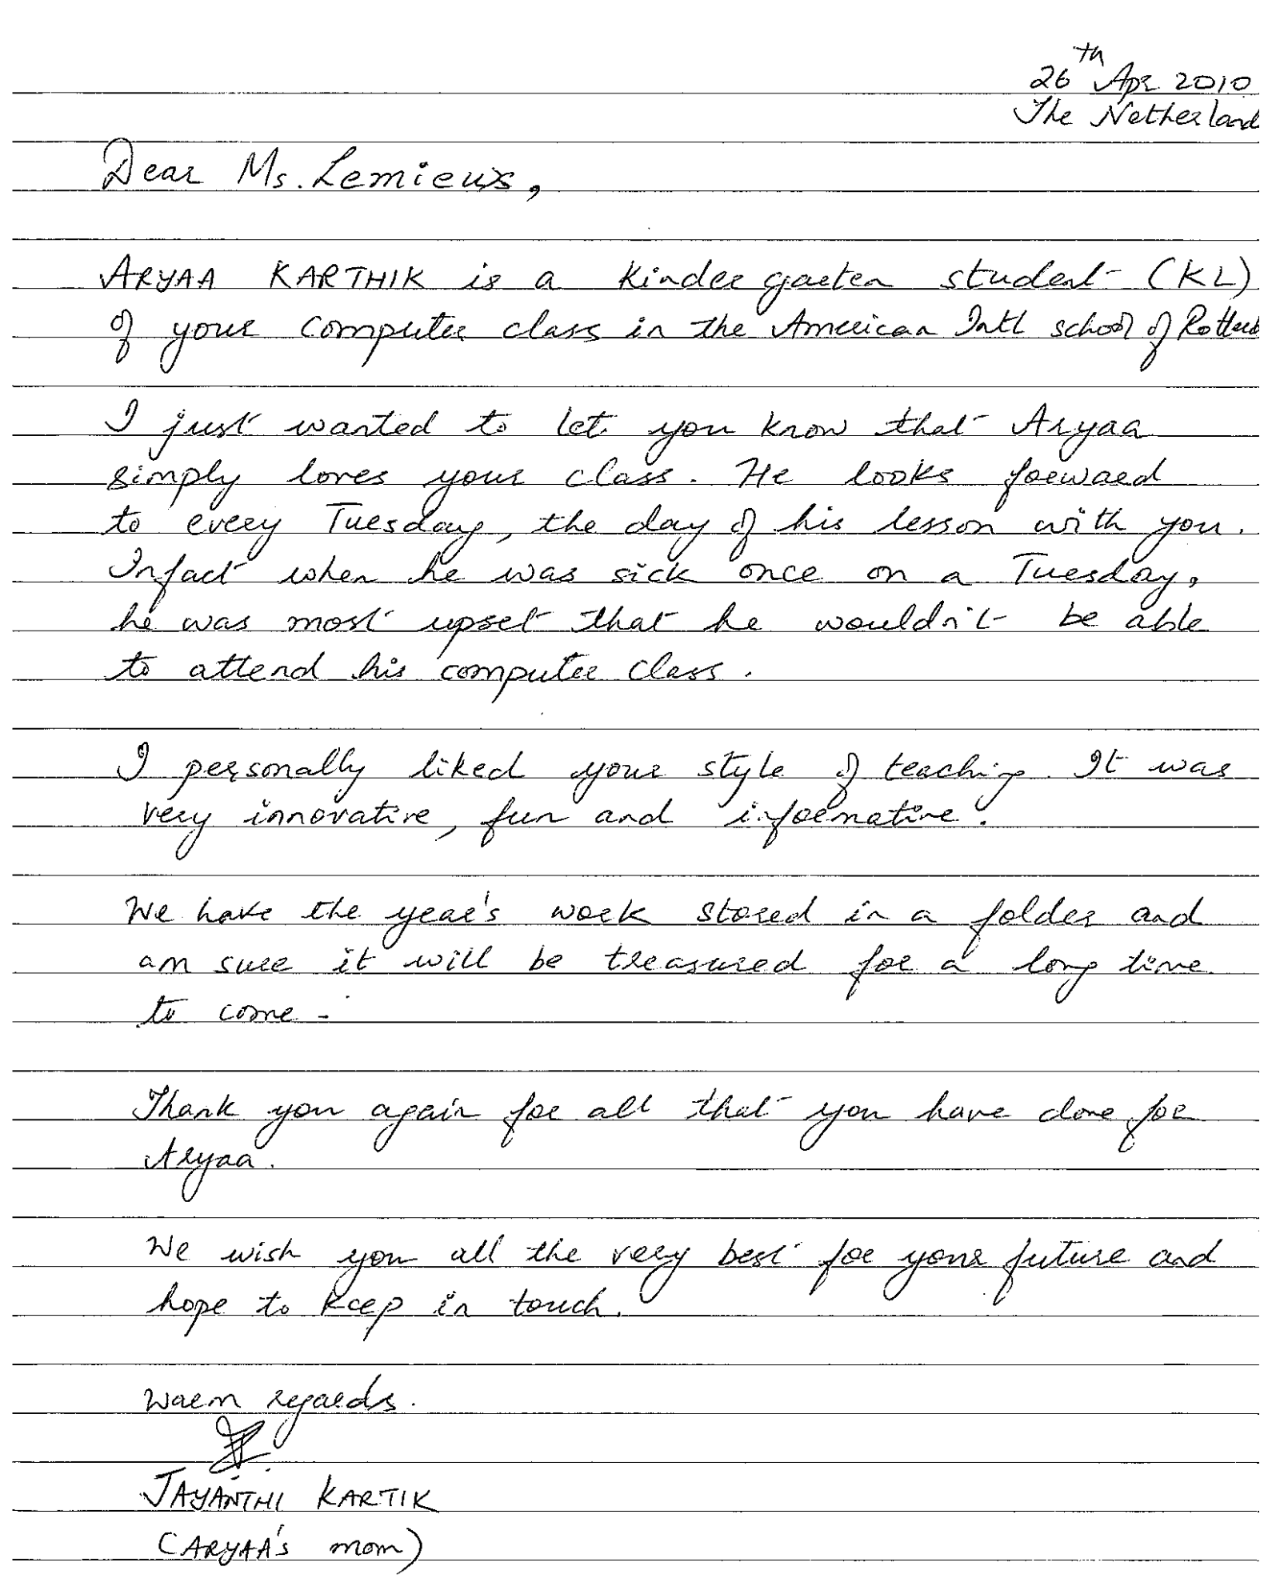 26th Apr 2010
The Netherland
Dear Ms. Lemieux,
ARYAA KARTHIK is a Kindergarten student (KL)
of your computer class in the American Intl school of Rotterd
I just wanted to let you know that Aryaa
simply loves your class. He looks forward
to every Tuesday, the day of his lesson with you.
Infact when he was sick once on a Tuesday,
he was most upset that he wouldn't be able
to attend his computer class.
I personally liked your style of teaching. It was
very innovative, fun and informative.
We have the year's work stored in a folder and
am sure it will be treasured for a long time
to come.
Thank you again for all that you have done for
Aryaa.
We wish you all the very best for your future and
hope to keep in touch.
Warm regards.
JAYANTHI KARTIK
(ARYAA's mom)